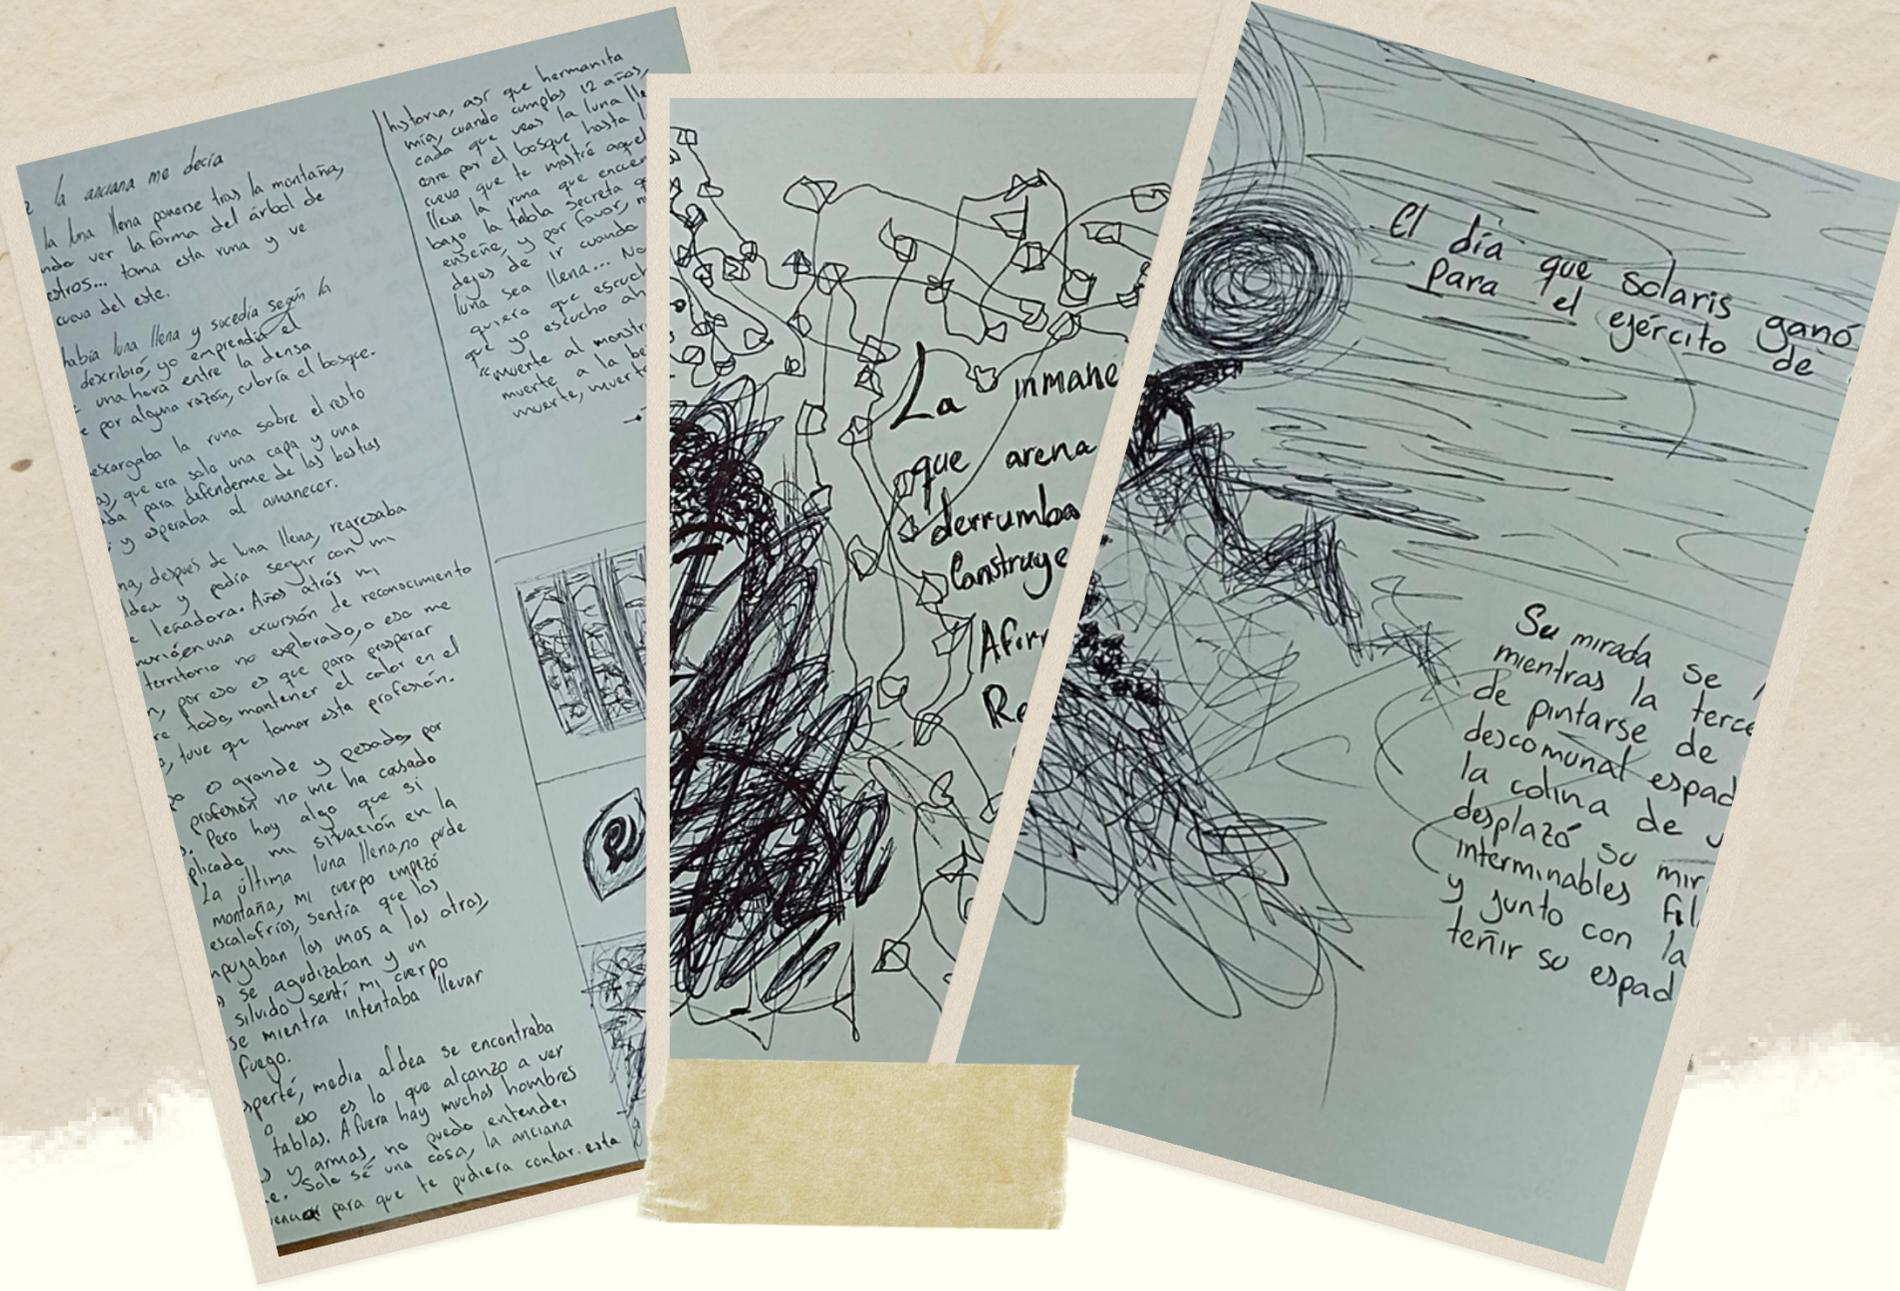 la anciana me decía
la luna llena ponerse tras la montaña,
ver la forma del árbol de
toma esta runa y ve
cueva del este.
había luna llena y sucedía según la
describió, yo emprendía el
una hora entre la densa
por alguna razón, cubría el bosque.
la runa sobre el resto
que era solo una capa y una
para defenderme de las bestias
y esperaba al amanecer.
después de luna llena, regresaba
y podía seguir con mi
leñadora. Años atrás mi
en una excursión de reconocimiento
territorio no explorado, o eso me
por eso es que para prosperar
todo, mantener el calor en el
tuve que tomar esta profesión.
es grande y pesado, por
profesión no me ha costado
Pero hay algo que sí
mi situación en la
La última luna llena, no pude
montaña, mi cuerpo empezó
escalofríos, sentía que los
los unos a los otros,
se agudizaban y un
silvido sentí mi cuerpo
mientra intentaba llevar
fuego.
media aldea se encontraba
o eso es lo que alcanzo a ver
tablas. Afuera hay muchos hombres
y armas, no puedo entender
Solo sé una cosa, la anciana
para que te pudiera contar esta
historia, así que hermanita
mía, cuando cumplas 12 años,
cada que veas la luna lle
corre por el bosque hasta l
cueva que te mostré aquel
lleva la runa que encuen
bajo la tabla secreta q
enseñe, y por favor, n
dejes de ir cuando
luna sea llena... No
quiero que escuch
que yo escucho ah
"muerte al monstr
muerte a la be
muerte, muert
La inmane
que arena
derrumba
Construye
Afirr
Re
El día que solaris ganó
para el ejército de
Su mirada se
mientras la terce
de pintarse de
descomunal espad
la colina de
desplazó su mir
interminables fil
y junto con la
teñir su espad